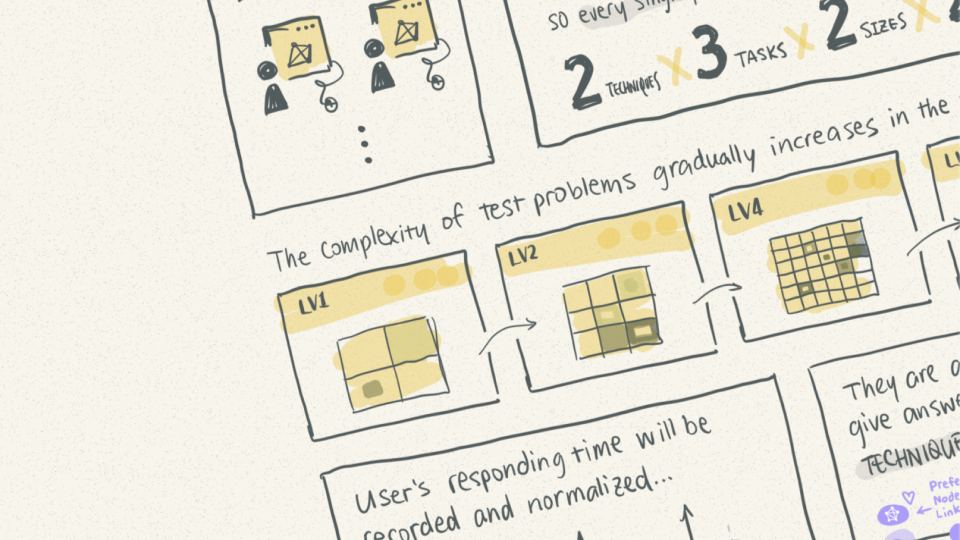 so every
2 TECHNIQUES X 3 TASKS X 2 SIZES X
The complexity of test problems gradually increases in the
LV1
LV2
LV4
User's responding time will be
recorded and normalized...
They are
give
TECHNIQUE
Node
Link